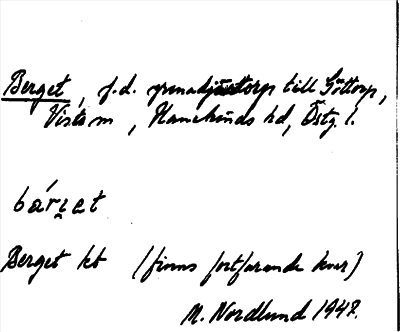 Berget, f.d. grenadjärstorp till Göttorp,
Viste sn, Hanekinds hd, Östg. l.
bárget
Berget ht (finns fortfarande kvar)
M. Nordlund 1947.